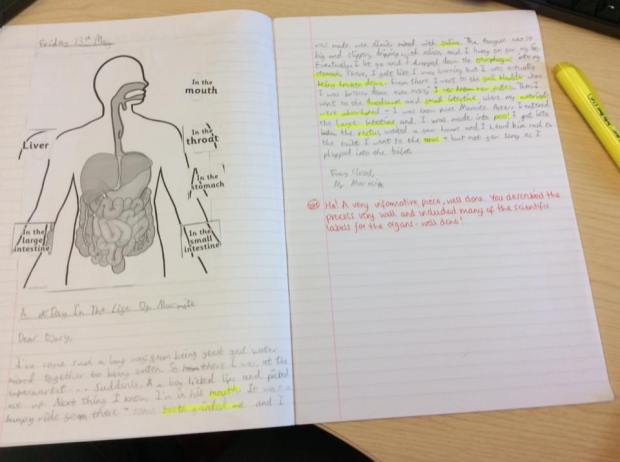 Friday 13th May
In the
mouth
Liver
In the
throat
In the
stomach
In the
large
intestine
In the
small
intestine
A Day In The Life Of Marmite
Dear Diary,
I've come such a long way from being yeast and water
mixed together to being eaten. So there I was, at the
supermarket ... Suddenly, A a boy licked lips and picked
me up. Next thing I know I'm in his mouth. It was a
bumpy ride some teeth and I
was made was mixed with saliva. The tongue was so
big and slippy, dripping and I hung on for my life.
Eventually I let go and I dropped down the oesophagus into my
stomach. I felt like I was but I was actually
being broken down. From there I went to the gall bladder where
I was broken down even more, Then I
went to the duodenum and small intestine where my
were absorbed - I was pure Marmite. After, I entered
the large intestine and I was made into poo! I got into
the rectum, waited a few hours and I
the toilet I went to the anus - but not for long as I
plopped into the toilet.
Marmite
Ha! A very informative piece, well done. You described the
process very well and included many of the scientific
labels for the organs - well done!